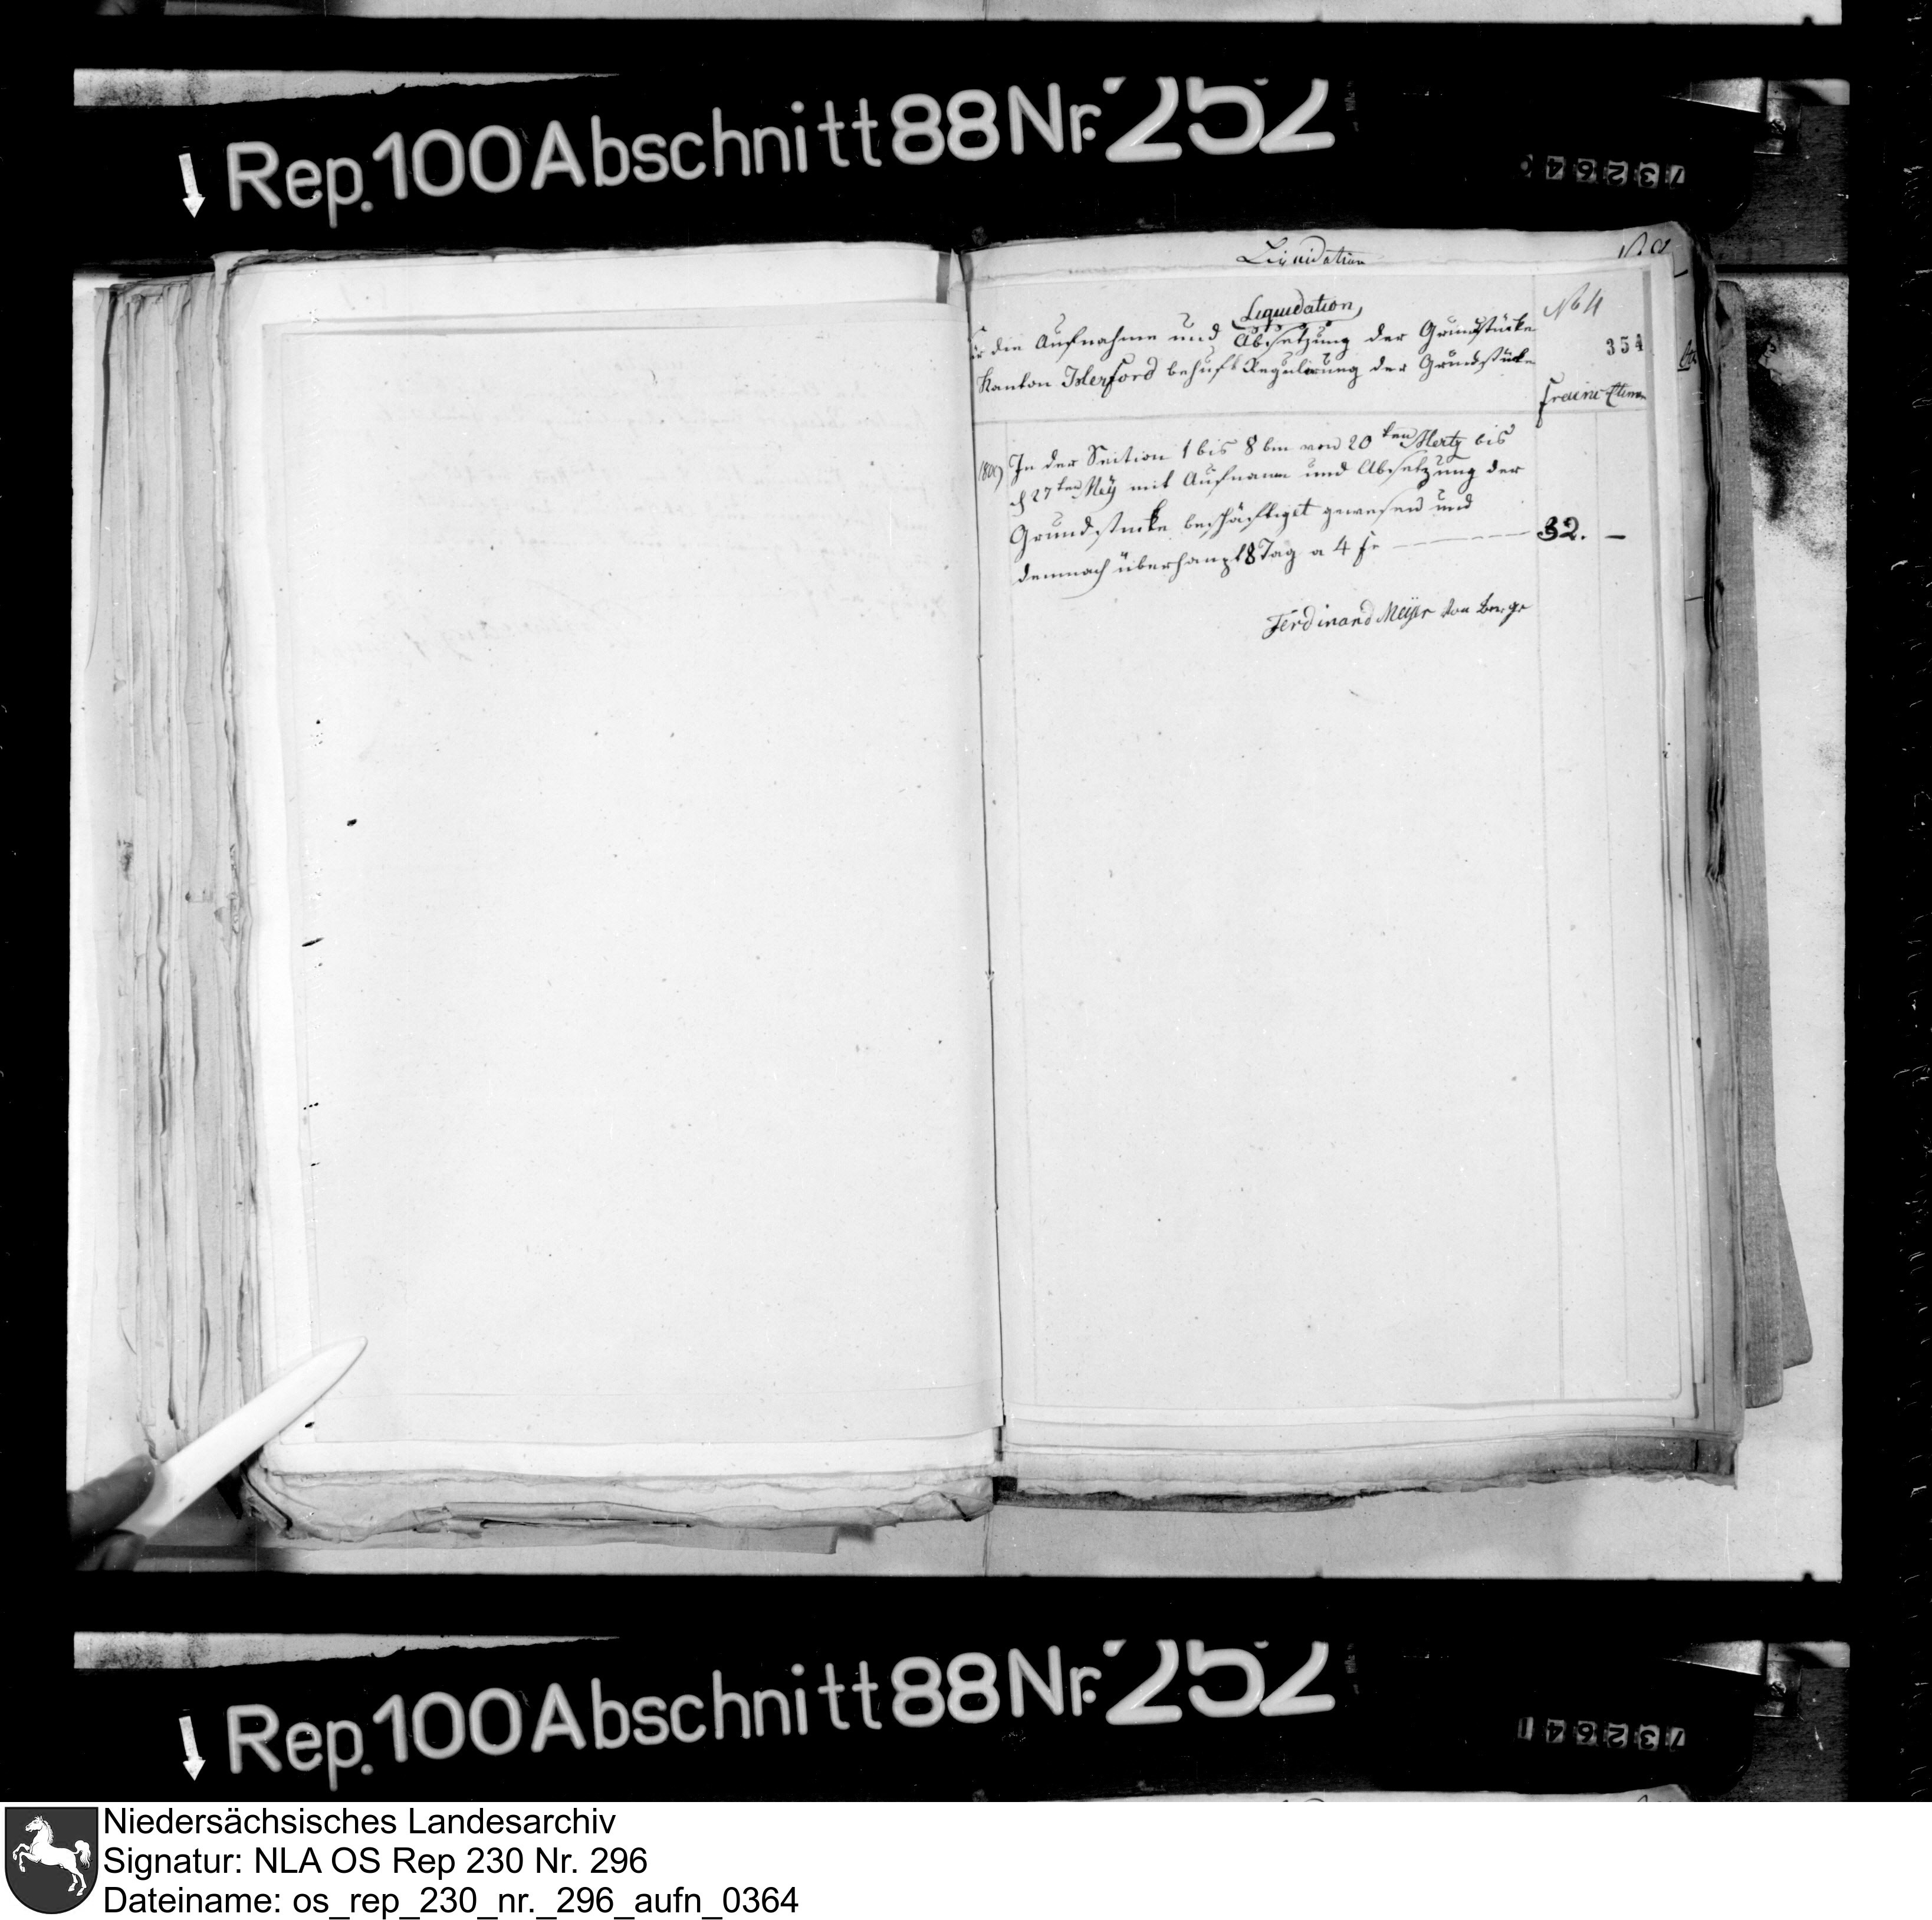 Rep. 100 Abschnitt 88 Nr. 252
732640
Liquidation
No 4
Liquidation
354
die Aufnahme und Absetzung der Grundstücke
Kanton Islerford behufs Regulirung der Grundstücke
1809 In der Section 1 bis 8 bin von 20ten Mertz bis
d 27ten Mey mit Aufnam und Absetzung der
Grundstücke beschäftiget gewesen und
demnach überhaupt 8 Tag a 4 fr 32. —
Ferdinand Meÿer von Berge
Rep. 100 Abschnitt 88 Nr. 252
732641
Niedersächsisches Landesarchiv
Signatur: NLA OS Rep 230 Nr. 296
Dateiname: os_rep_230_nr._296_aufn_0364